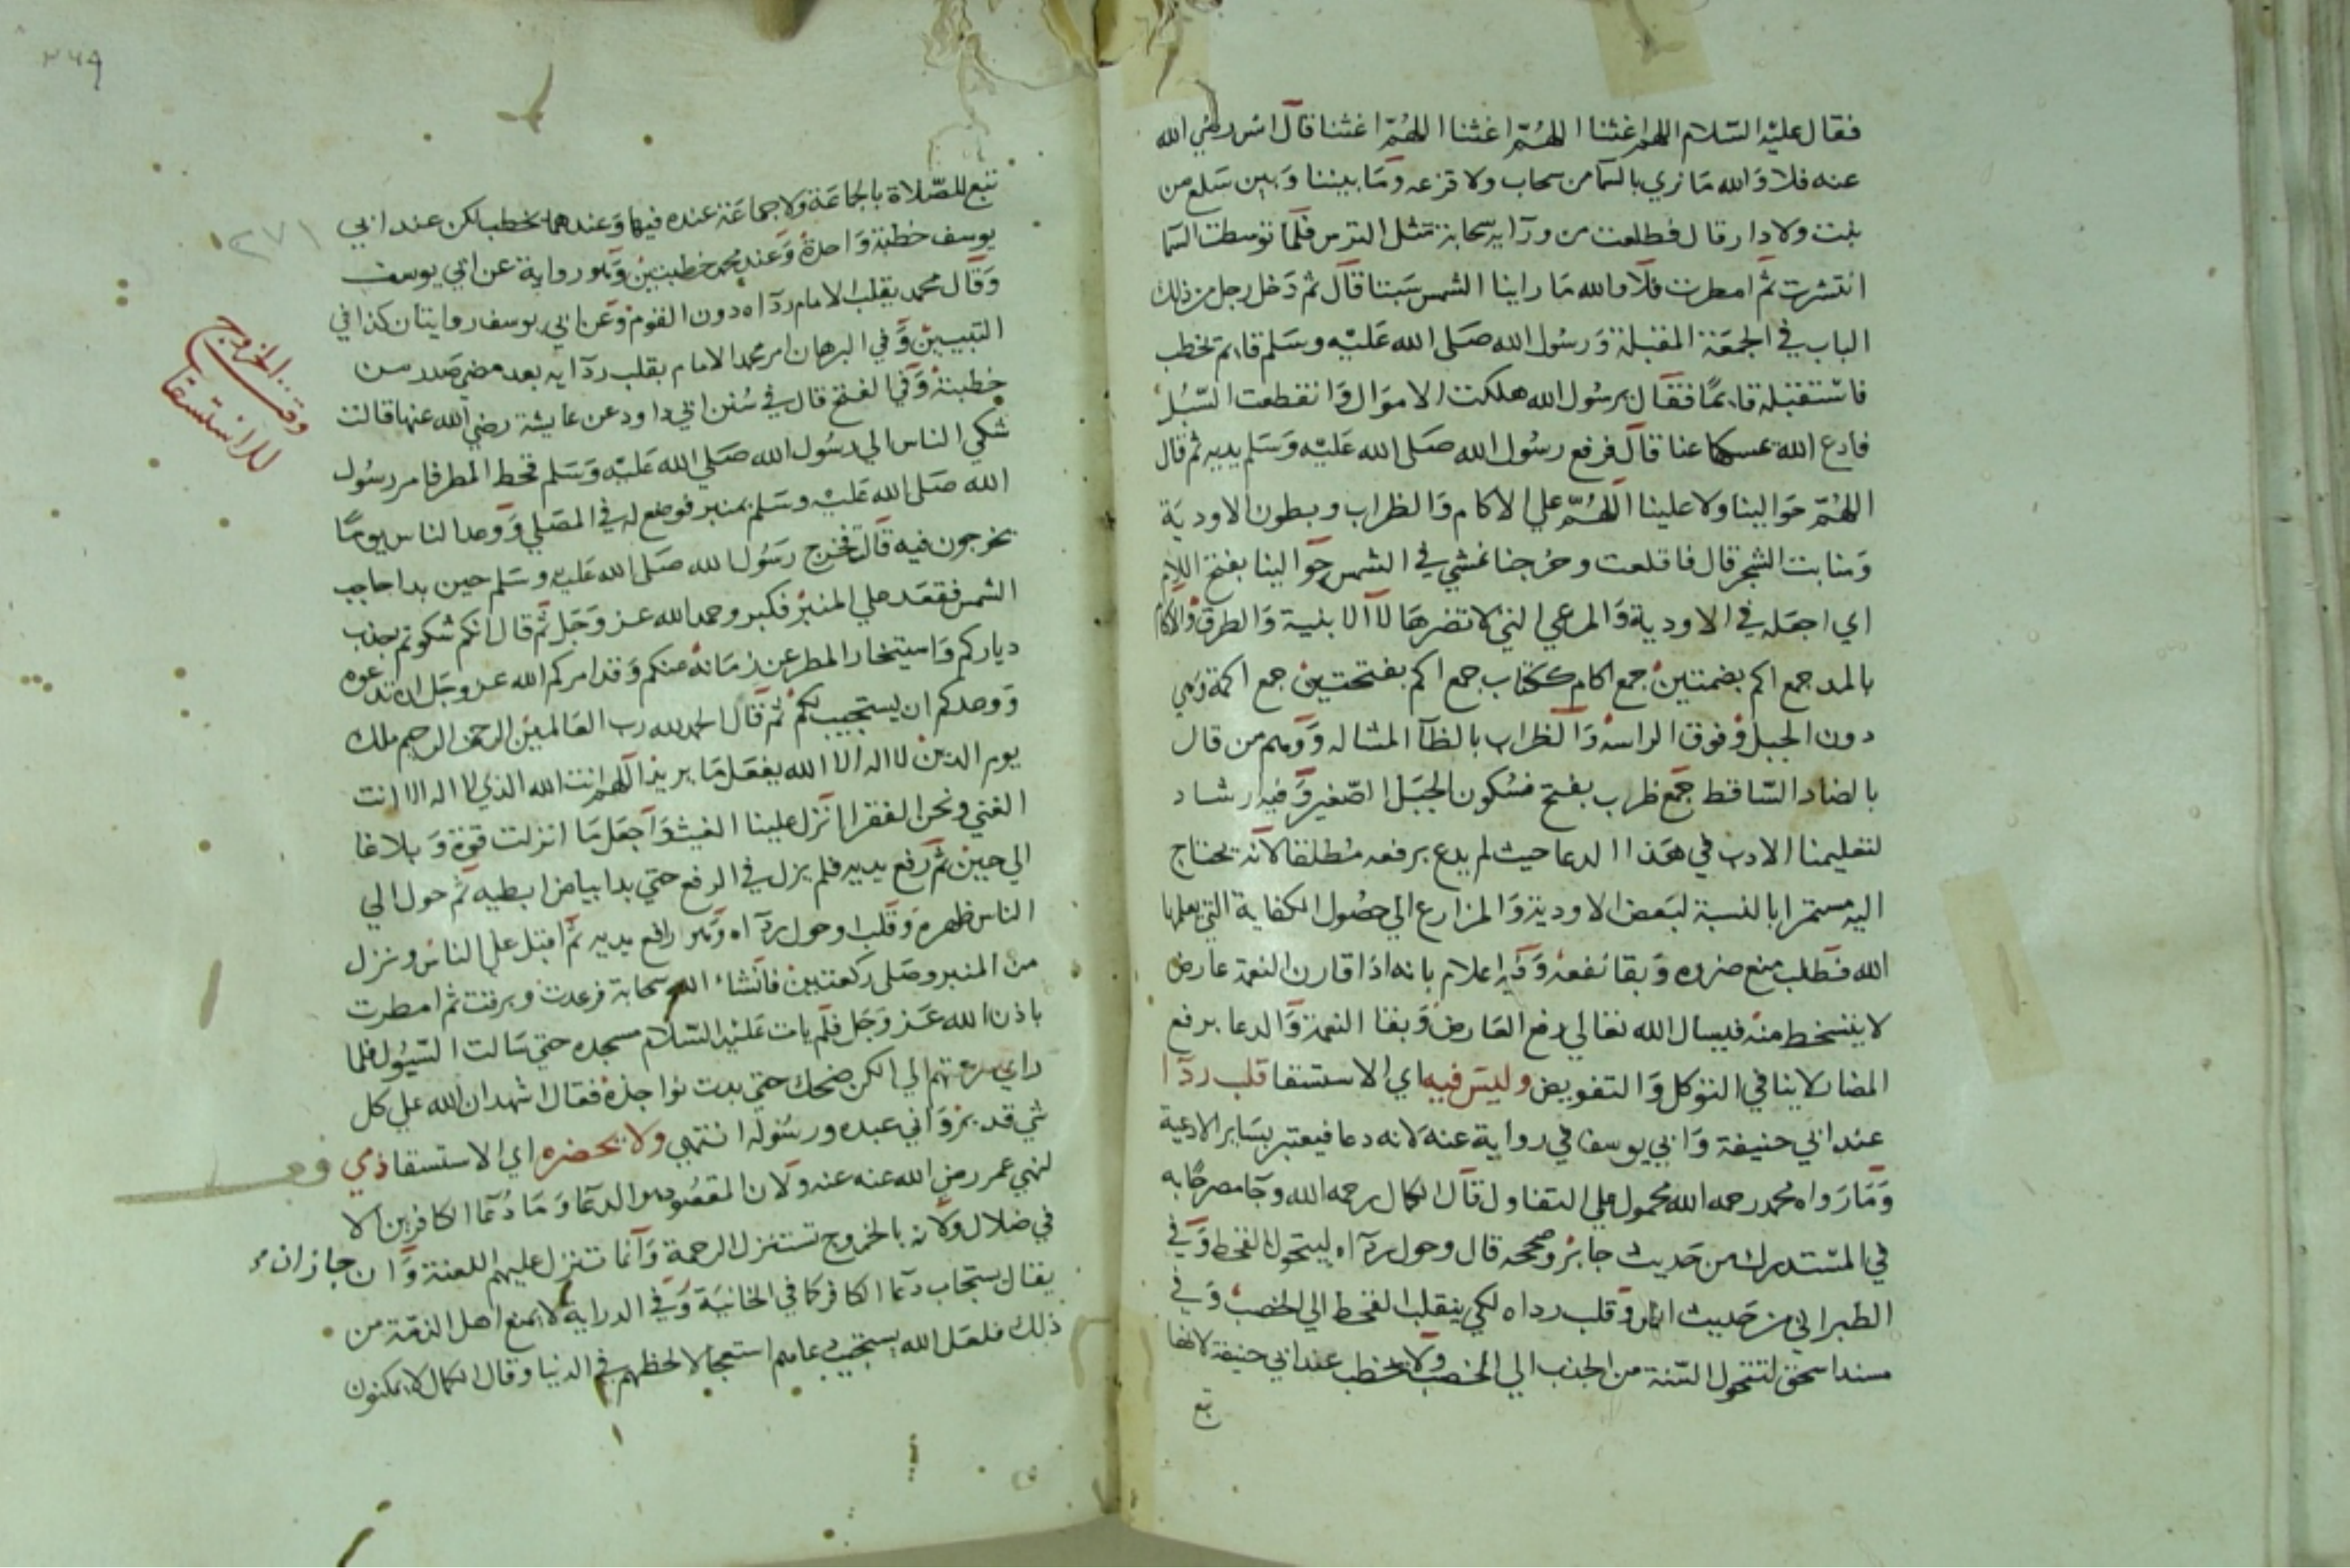 فقال عليه السلام اللهم اغثنا اللهم اغثنا اللهم اغثنا قال انس رضي الله
عنه فلا والله ما نري بالسما من سحاب ولا قزعه وما بيننا وبين سلع من
بيت ولا دار قال فطلعت من ورآيه سحابة مثل الترس فلما توسطت السما
انتشرت ثم امطرت فلا والله ما راينا الشمس سبتا قال ثم دخل رجل من ذلك
الباب في الجمعة المقبلة ورسول الله صلى الله عليه وسلم قايم يخطب
فاستقبله قايما فقال يرسول الله هلكت الاموال وانقطعت السبل
فادع الله يمسكها عنا قال فرفع رسول الله صلى الله عليه وسلم يديه ثم قال
اللهم حوالينا ولا علينا اللهم علي الاكام والظراب وبطون الاودية
ومنابت الشجر قال فاقلعت وخرجنا نمشي في الشمس حوالينا بفتح اللام
اي اجعله في الاودية والمراعي التي لا تضرها لا الابنية والطرق والاكام
بالمد جمع اكم بضمتين جمع اكام ككتاب جمع اكم بفتحتين جمع اكمة وهي
دون الجبل وفوق الرابية والظراب بالظآ المشاله ووهم من قال
بالضاد الساقط جمع ظرب بفتح فسكون الجبل الصغير وفيه ارشاد
لتعليمنا الادب في هذا الدعا حيث لم يدع برفعه مطلقا لانه يحتاج
اليه مستمرا بالنسبة لبعض الاودية والمزارع الي حصول الكفاية التي يعلمها
الله فطلب منع ضرره وبقا نفعه وفيه اعلام بانه اذا قارن النعمة عارض
لا يتسخط منه فيسال الله تعالي رفع العارض وبقا النعمة والدعا برفع
المضار لا ينافي التوكل والتفويض وليس فيه اي الاستسقا قلب ردآ
عند ابي حنيفة وابي يوسف في رواية عنه لانه دعا فيعتبر بساير الادعية
وما رواه محمد رحمه الله محمول علي التفاول قال الكمال رحمه الله وجآ مصرحا به
في المستدرك من حديث جابر وصححه قال وحول ردآه ليتحول القحط وفي
الطبراني من حديث انس وقلب رداه لكي ينقلب القحط الي الخصب وفي
مسند اسحق لتتحول السنة من الجدب الي الخصب ولا يخطب عند ابي حنيفة لانها
تبع
٢٦٩
٢٧١
تتبع للصلاة بالجماعة ولا جماعة عنده فيها وعندهما يخطب لكن عند ابي
يوسف خطبة واحدة وعند محمد خطبتين وهو رواية عن ابي يوسف
وقال محمد يقلب الامام ردآه دون القوم وعن ابي يوسف روايتان كذا في
التبيين وفي البرهان امر محمد الامام بقلب ردآيه بعد مضي صدر من
خطبته وفي الفتح قال في سنن ابي داود عن عايشة رضي الله عنها قالت
شكي الناس الي رسول الله صلي الله عليه وسلم قحط المطر فامر رسول
الله صلى الله عليه وسلم بمنبر فوضع له في المصلي ووعد الناس يوما
يخرجون فيه قال فخرج رسول الله صلى الله عليه وسلم حين بدا حاجب
الشمس فقعد علي المنبر فكبر وحمد الله عز وجل ثم قال انكم شكوتم جدب
دياركم واستيخار المطر عن زمانه عنكم وقد امركم الله عز وجل ان تدعوه
ووعدكم ان يستجيب لكم ثم قال الحمد لله رب العالمين الرحمن الرحيم ملك
يوم الدين لا اله الا الله يفعل ما يريد اللهم انت الله الذي لا اله الا انت
الغني ونحن الفقرا انزل علينا الغيث واجعل ما انزلت قوة وبلاغا
الي حين ثم رفع يديه فلم يزل في الرفع حتي بدا بياض ابطيه ثم حول الي
الناس ظهره وقلب او حول ردآه وهو رافع يديه ثم اقبل علي الناس ونزل
من المنبر وصلى ركعتين فانشاء الله سحابة فرعدت وبرقت ثم امطرت
باذن الله عز وجل فلم يات عليه السلام مسجده حتي سالت السيول فلما
راي سرعتهم الي الكن ضحك حتي بدت نواجذه فقال اشهد ان الله علي كل
شي قدير واني عبده ورسوله انتهي ولا يحضره اي الاستسقا ذمي
لنهي عمر رضي الله عنه عنه ولان المقصود هو الدعا وما دعآ الكافرين الا
في ضلال ولانه بالخروج تستنزل الرحمة وانما تنزل عليهم اللعنة وان جاز ان
يقال يستجاب دعآ الكافر كما في الخانية وفي الدراية لا يمنع اهل الذمة من
ذلك فلعل الله يستجيب دعاهم استعجالا لحظهم في الدنيا وقال الكمال لا يمكنون
الخروج
للاستسقا